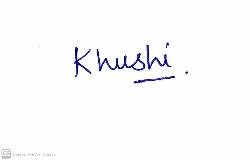 Khushi.
CS Scanned with CamScanner